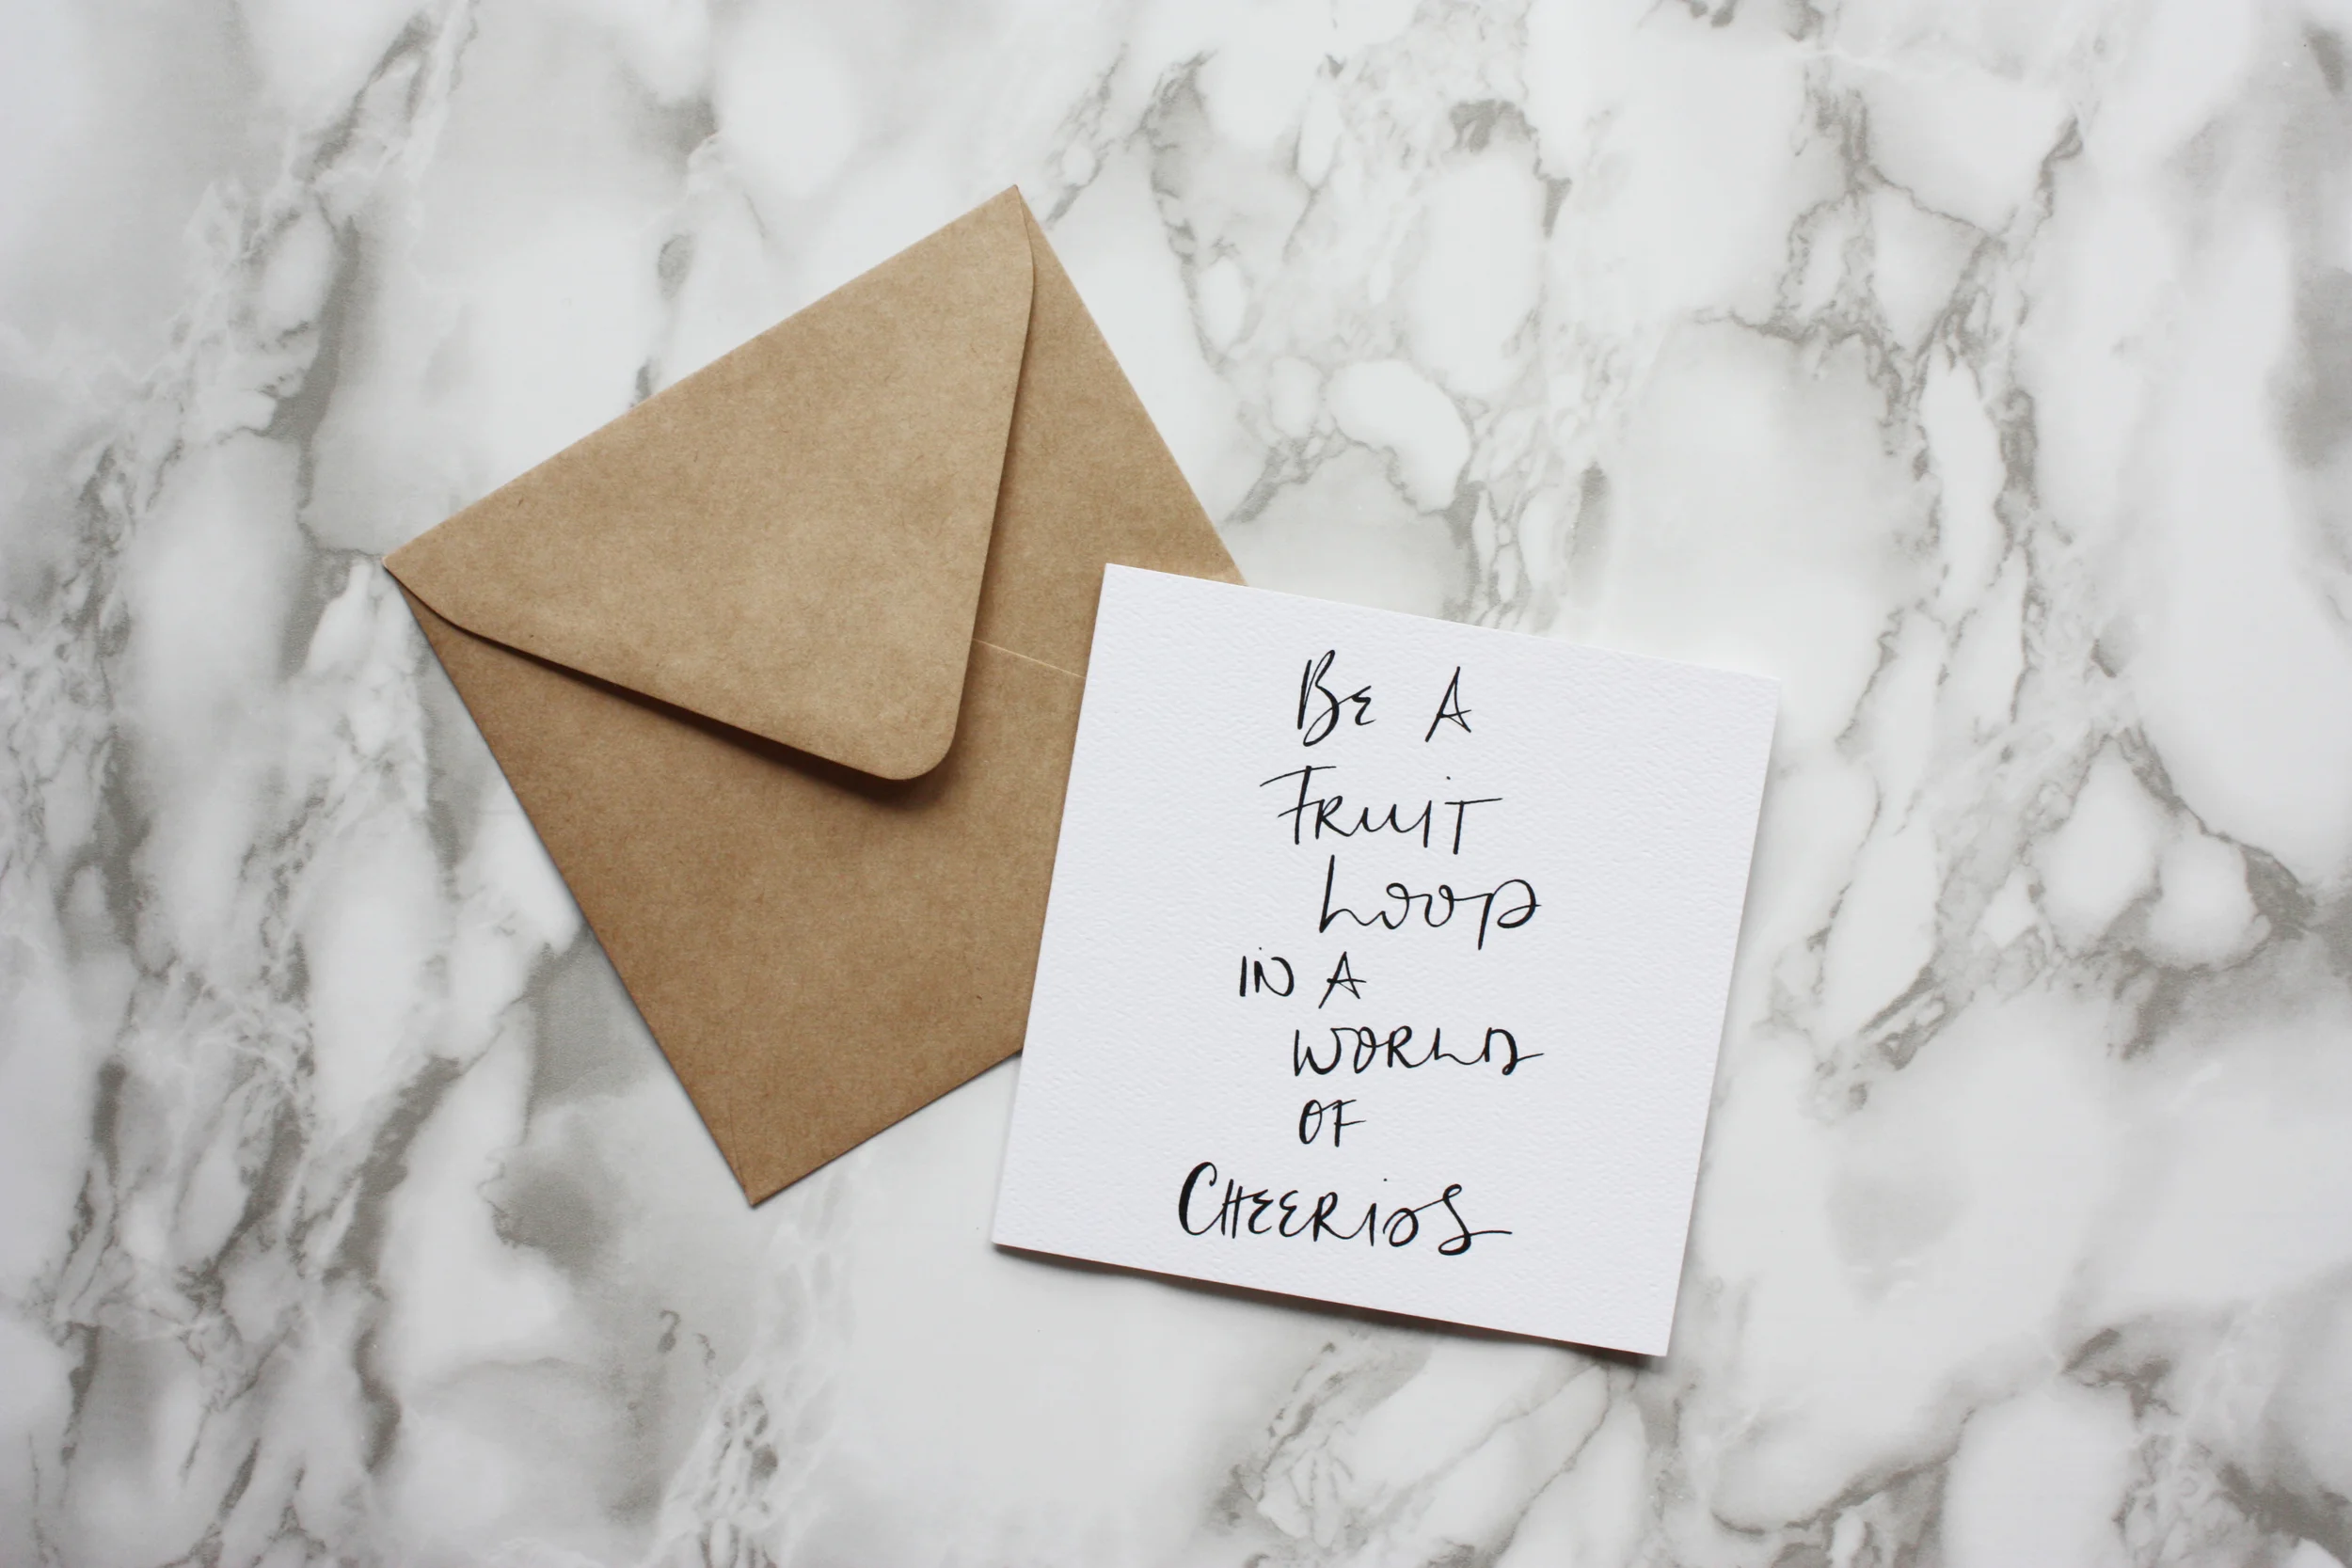 BE A
FRUIT
LOOP
IN A
WORLD
OF
CHEERIOS